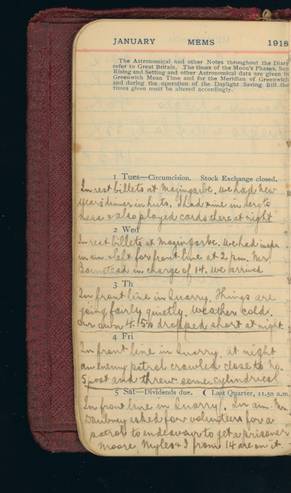 JANUARY MEMS 1918
The Astronomical and other Notes throughout the Diary
refer to Great Britain. The times of the Moon's Phases, Sun
Rising and Setting and other Astronomical data are given in
Greenwich Mean Time and for the Meridian of Greenwich
and during the operation of the Daylight Saving Bill the
times given must be altered accordingly.
1 Tues—Circumcision. Stock Exchange closed.
In rest billets at Mazingarbe. We had New
Years dinner in huts. I had mine in
& also played cards there at night
2 Wed
In rest billets at Mazingarbe. We had
in am & left for front line at 2 p.m. Mr.
in charge of 14. We arrived
3 Th
In front line in Quarry. Things are
going fairly quietly, weather cold.
Our own 4.5s dropped short at night
4 Fri
In front line in Quarry. At night
an enemy patrol crawled close to No.
5 post and threw some cylindrical
5 Sat—Dividends due. ( Last Quarter, 11.50 a.m.
In front line in Quarry. In am. Mr.
asked for volunteers for a
patrol to endeavour to get a prisoner
Moore, Myles & I from 14 are on it